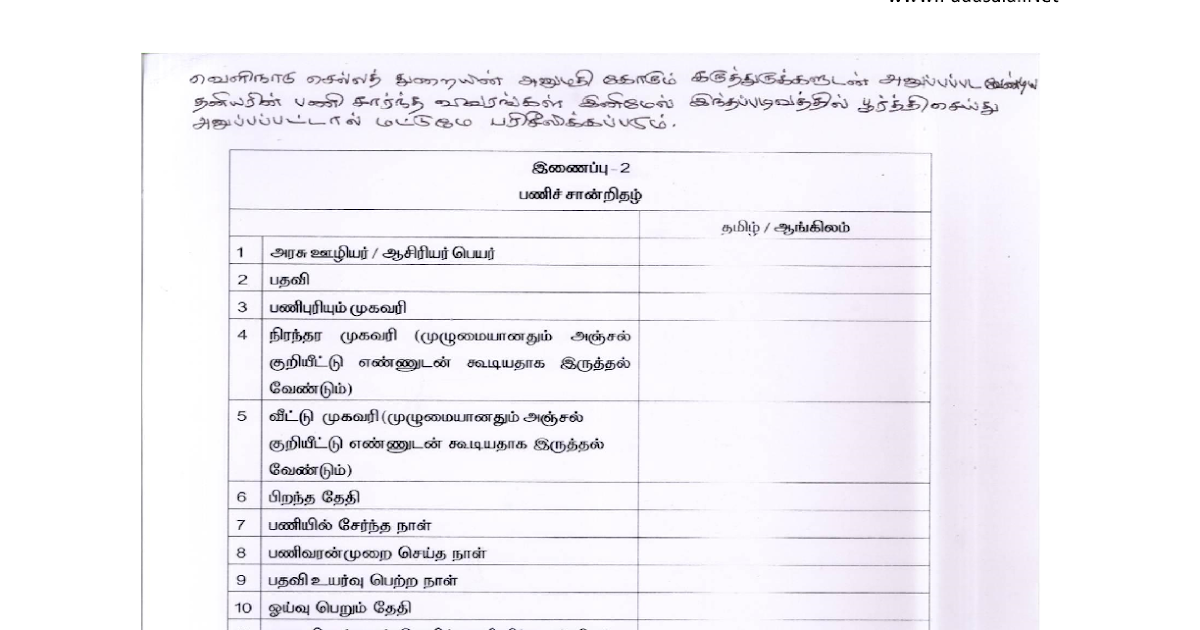 வெளிநாடு செல்லத் துறையின் அனுமதி கோரும் கருத்துருக்களுடன் அனுப்பப்பட வேண்டிய
தனியரின் பணி சார்ந்த விவரங்கள் இனிமேல் இந்தப்படிவத்தில் பூர்த்தி செய்து
அனுப்பப்பட்டால் மட்டுமே பரிசீலிக்கப்படும்.
இணைப்பு - 2
பணிச் சான்றிதழ்
தமிழ் / ஆங்கிலம்
1 அரசு ஊழியர் / ஆசிரியர் பெயர்
2 பதவி
3 பணிபுரியும் முகவரி
4 நிரந்தர முகவரி (முழுமையானதும் அஞ்சல்
குறியீட்டு எண்ணுடன் கூடியதாக இருத்தல்
வேண்டும்)
5 வீட்டு முகவரி (முழுமையானதும் அஞ்சல்
குறியீட்டு எண்ணுடன் கூடியதாக இருத்தல்
வேண்டும்)
6 பிறந்த தேதி
7 பணியில் சேர்ந்த நாள்
8 பணிவரன்முறை செய்த நாள்
9 பதவி உயர்வு பெற்ற நாள்
10 ஓய்வு பெறும் தேதி